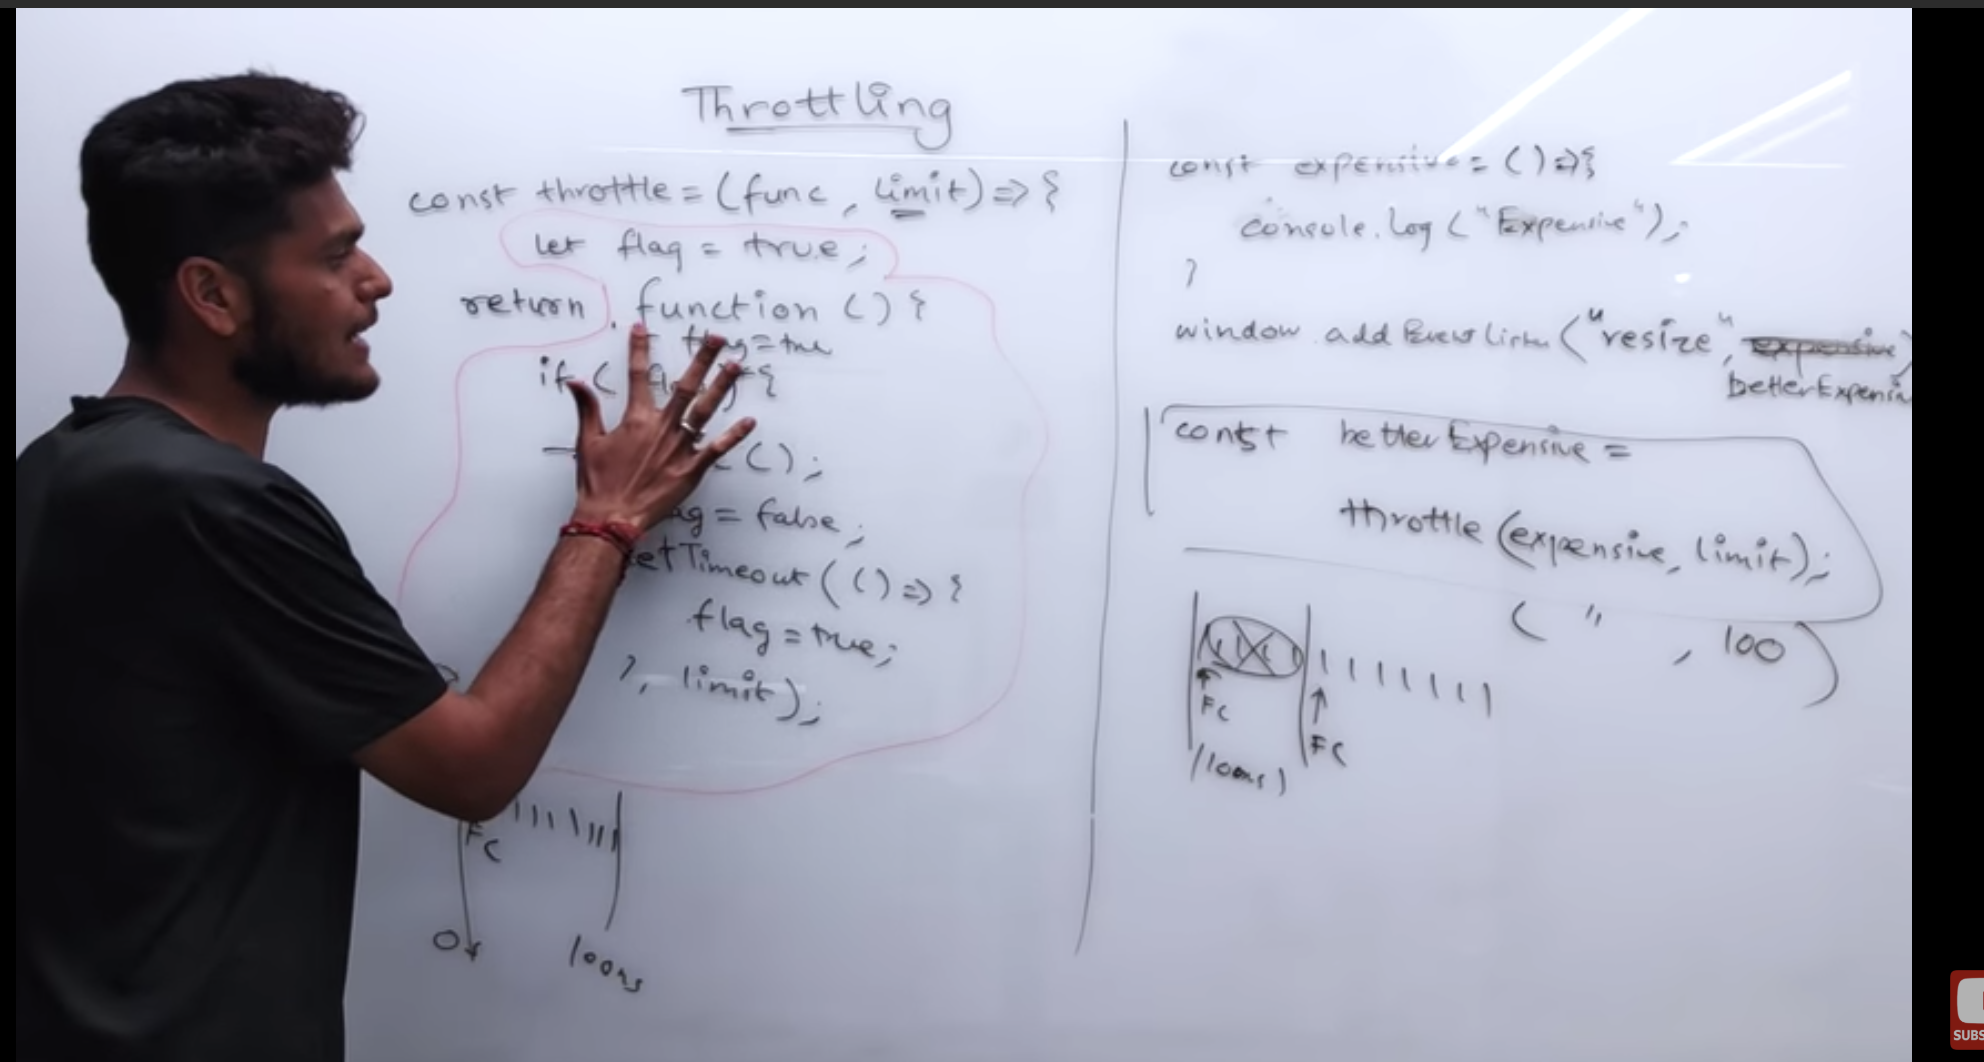 Throttling
const throttle = (func, limit) => {
let flag = true;
return function () {
flag = true
if ( {
();
= false;
etTimeout ( () => {
flag = true;
}, limit);
FC
0
100ms
const expensive = () => {
console.log ("Expensive");
}
window.addEventListener ("resize", expensive)
betterExpensiv
const betterExpensive =
throttle (expensive, limit);
( " , 100 )
FC
FC
(100ms)
SUBS